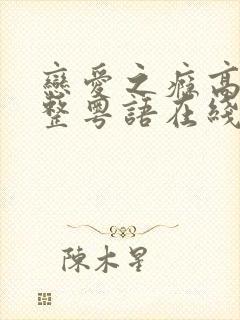 戀愛之癮高
整粵語在綫
陳木星